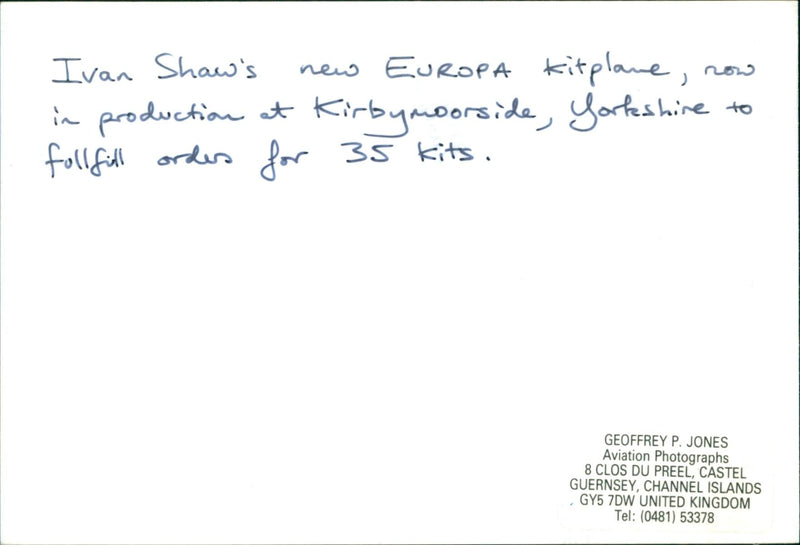 Ivan Shaw's new EUROPA kitplane, now
in production at Kirbymoorside, Yorkshire to
fullfill orders for 35 kits.
GEOFFREY P. JONES
Aviation Photographs
8 CLOS DU PREEL, CASTEL
GUERNSEY, CHANNEL ISLANDS
GY5 7DW UNITED KINGDOM
Tel: (0481) 53378